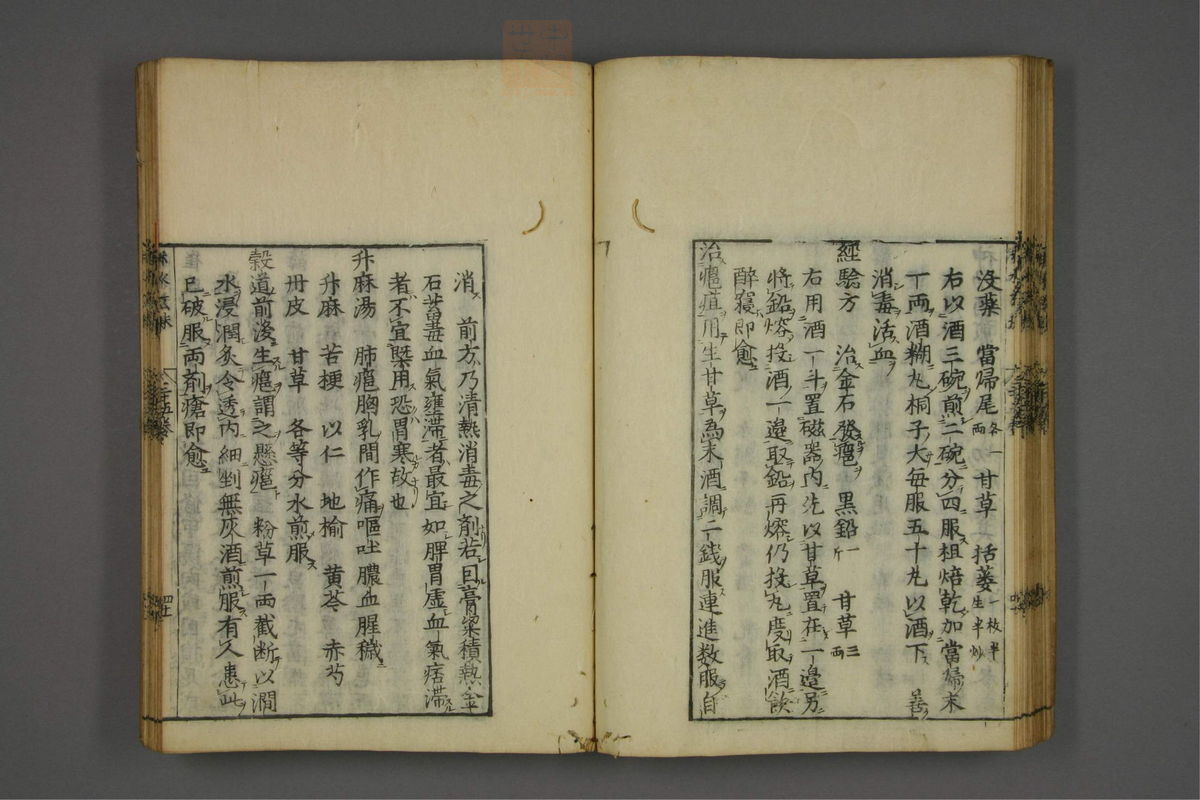 沒藥 當歸尾各一兩 甘草 括蔞一枚半生半炒
右以酒三碗煎二碗分四服柤焙乾加當歸末
一兩酒糊丸桐子大每服五十丸以酒下 善
消毒活血
經驗方 治金石發癰 黑鉛一斤 甘草三兩
右用酒一斗置磁器內先以甘草置在一邊另
將鉛熔投酒一邊取鉛再熔仍投九度取酒飲
醉寢即愈
治癰疽用生甘草為末酒調二錢服連進数服自
消 前方乃清熱消毒之劑若曰膏粱積熱金
石蓄毒血氣壅滯者最宜如脾胃虛血氣痞滯
者不宜槩用恐胃寒故也
升麻湯 肺癰胸乳間作痛嘔吐膿血腥穢
升麻 苦梗 以仁 地榆 黃芩 赤芍
丹皮 甘草 各等分水煎服
穀道前後生癰謂之懸癰 粉草一兩截断以澗
水浸潤炙令透內細剉無灰酒煎服有久患此
已破服兩劑瘡即愈